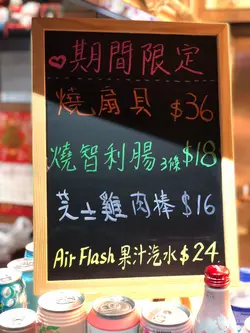 期間限定
燒扇貝 $36
燒智利腸 3條 $18
芝士雞肉棒 $16
Air Flash 果汁汽水 $24